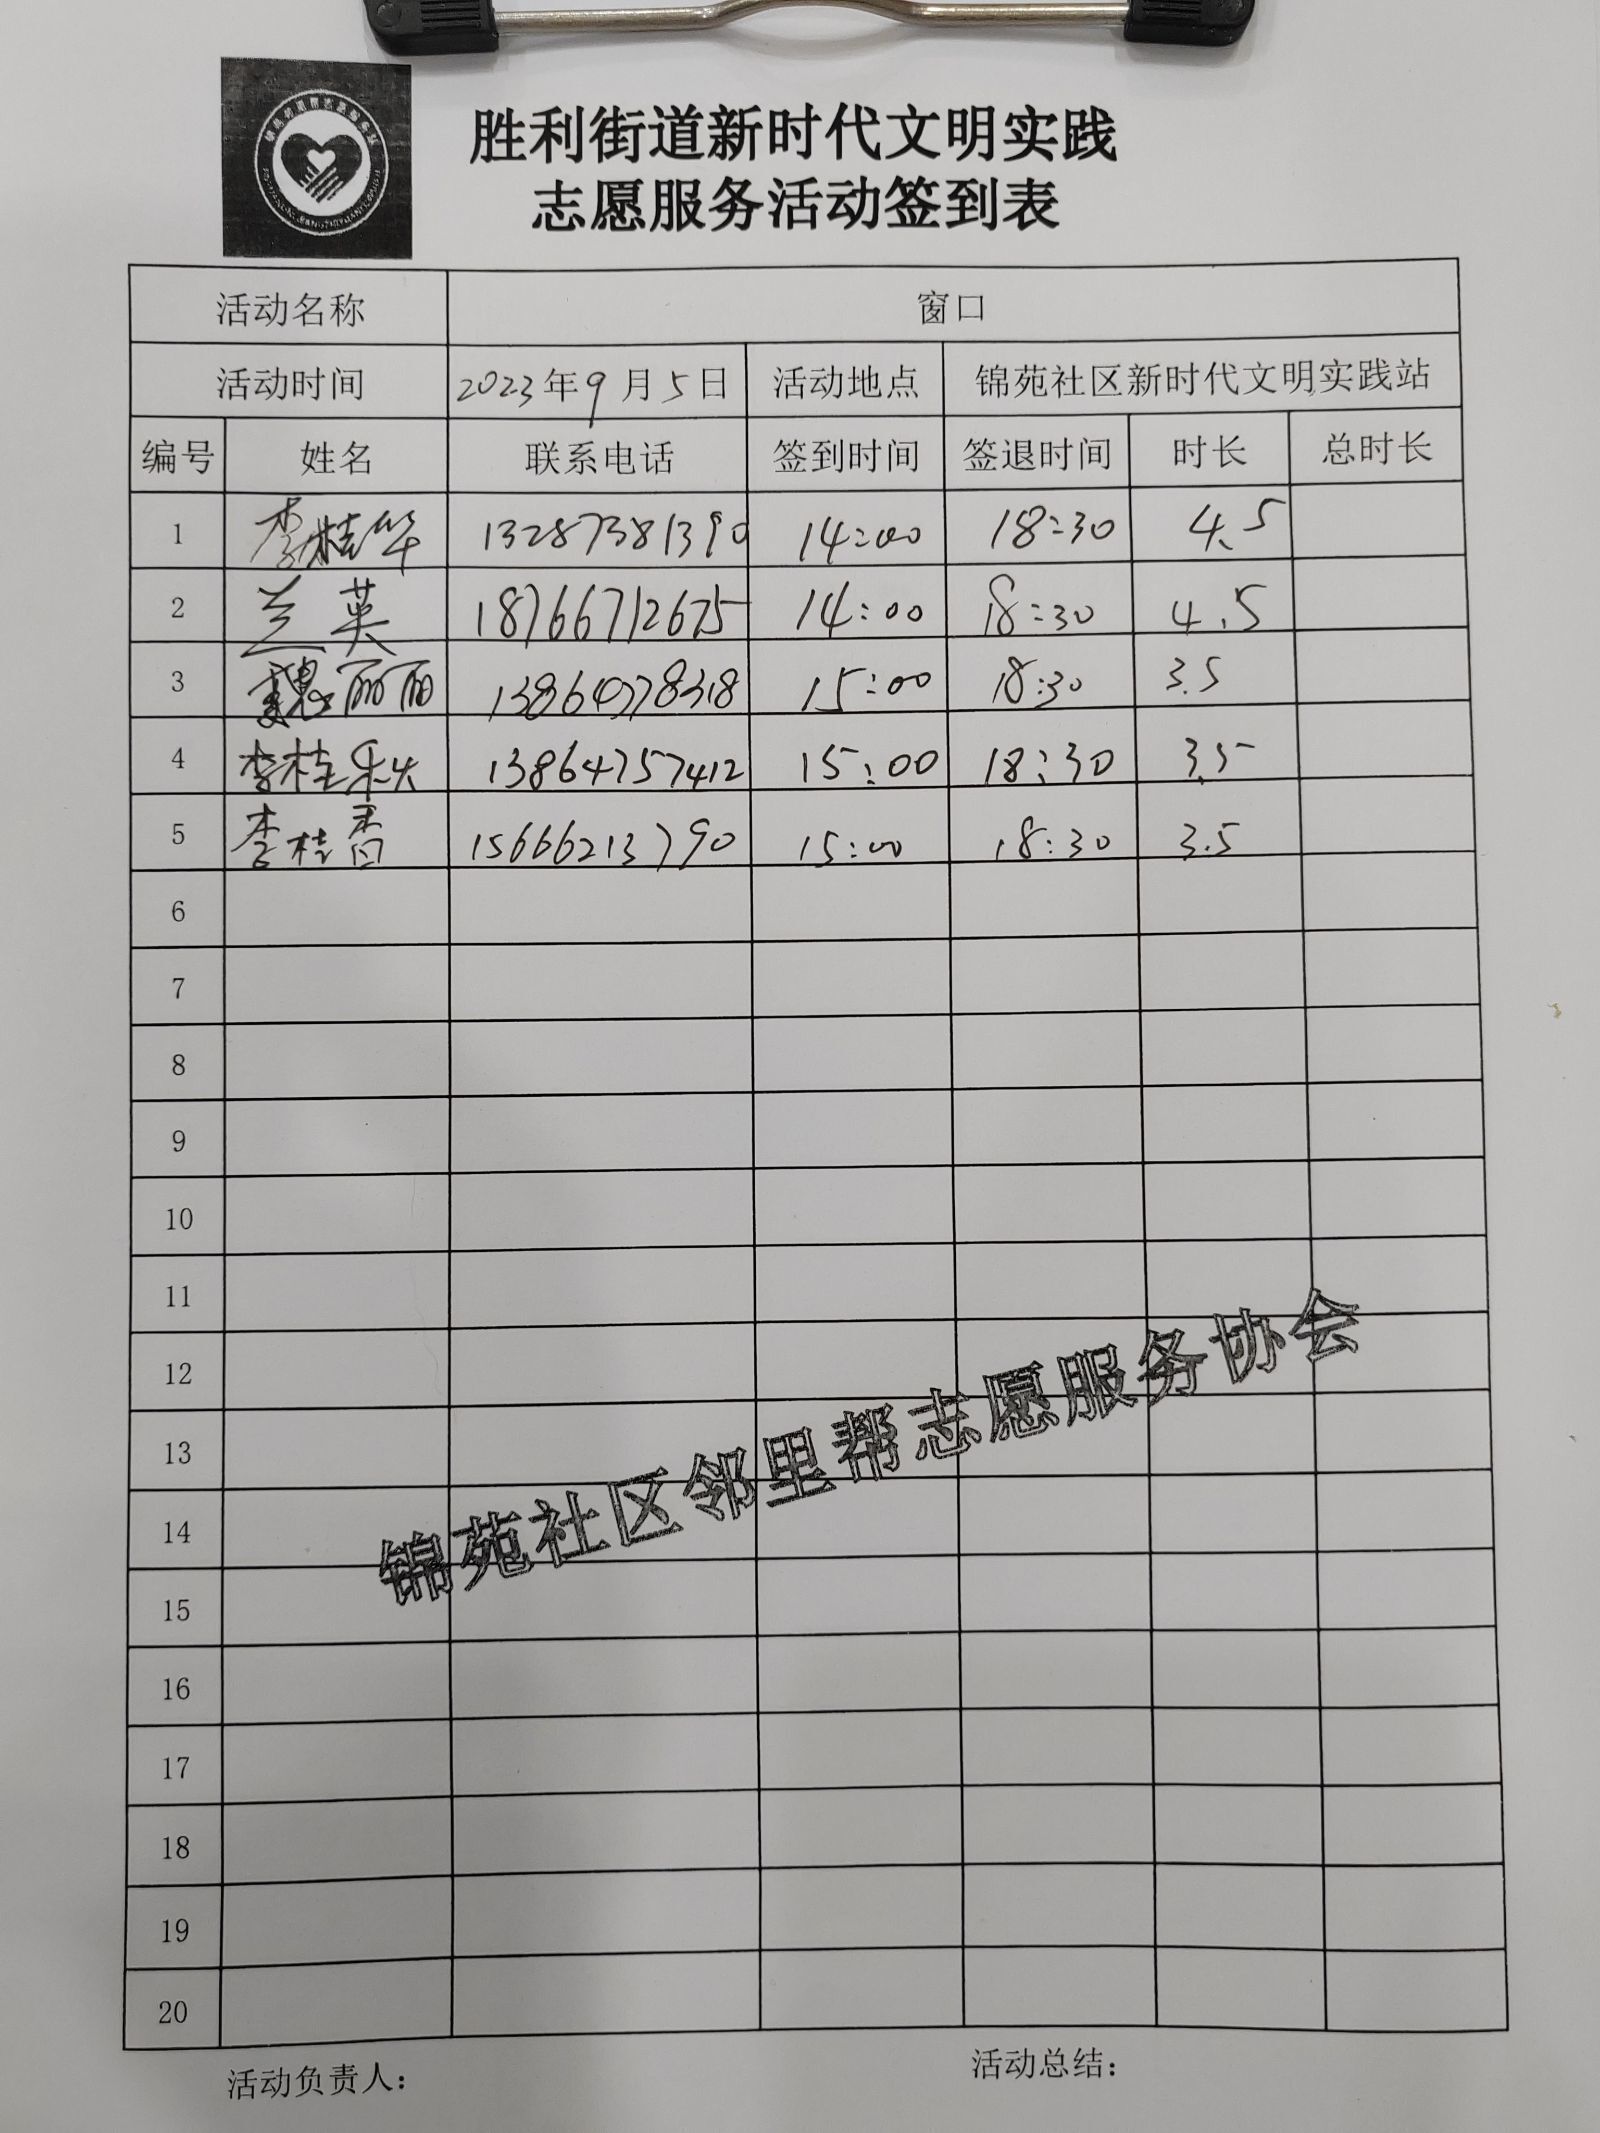 胜利街道新时代文明实践
志愿服务活动签到表
活动名称 窗口
活动时间 2023年9月5日 活动地点 锦苑社区新时代文明实践站
编号 姓名 联系电话 签到时间 签退时间 时长 总时长
1 李桂华 13287381390 14:00 18:30 4.5
2 兰英 18766712675 14:00 18:30 4.5
3 魏丽丽 15:00 18:30 3.5
4 李桂秋 13864757412 15:00 18:30 3.5
5 李桂香 15666213790 15:00 18:30 3.5
6
7
8
9
10
11
12
13
14
15
16
17
18
19
20
锦苑社区邻里帮志愿服务协会
活动负责人： 活动总结：